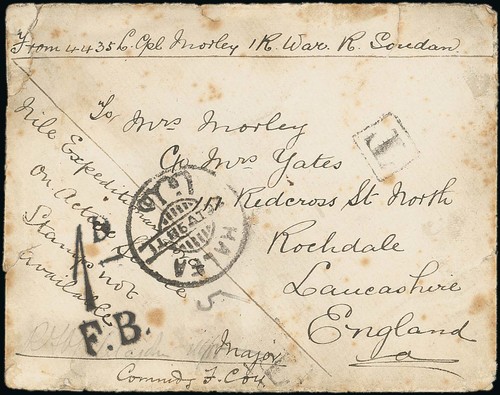 From 4435 L. Cpl Morley 1 R. War. R. Soudan
To Mrs Morley
C/o Mrs Yates
117 Redcross St North
Rochdale
Lancashire
England
Nile Expeditionary
on Active Service
Stamps not
available
T
HALFA
1D
F.B.
Major
Commdg F. Coy